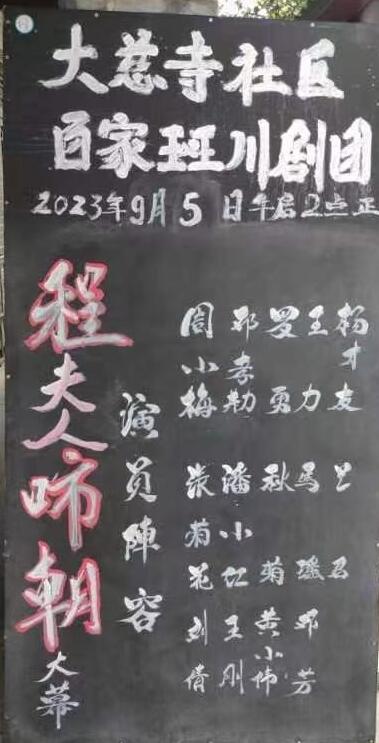 大慈寺社区
百家班川剧团
2023年9月5日午后2点正
程夫人啼朝 大幕
演員陣容
周小梅
邓孝
罗勇
王力
杨才友
张菊花
潘小红
秋菊
馬瑶
刘倩
王刚
黄小伟
邓芳